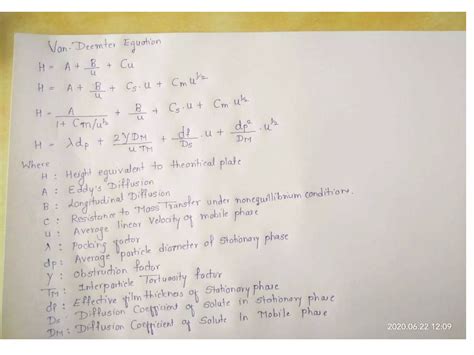 Van-Deemter Equation
H = A + B/u + Cu
H = A + B/u + Cs.u + Cm u^1/2
H = A/(1 + Cm/u^1/2) + B/u + Cs.u + Cm u^1/2
H = λdp + 2γDM/(u TM) + df/Ds .u + dp²/DM .u^1/2
Where
H : Height equivalent to theoritical plate
A : Eddy's Diffusion
B : Longitudinal Diffusion
C : Resistance to Mass Transfer under nonequilibrium conditions.
u : Average linear velocity of mobile phase
λ : Packing factor
dp : Average particle diameter of stationary phase
γ : Obstruction factor
TM : Interparticle Tortuosity factor
df : Effective film thickness of Stationary phase
Ds : Diffusion Coefficient of Solute in stationary phase
DM : Diffusion Coefficient of Solute in Mobile phase
2020.06.22 12:09